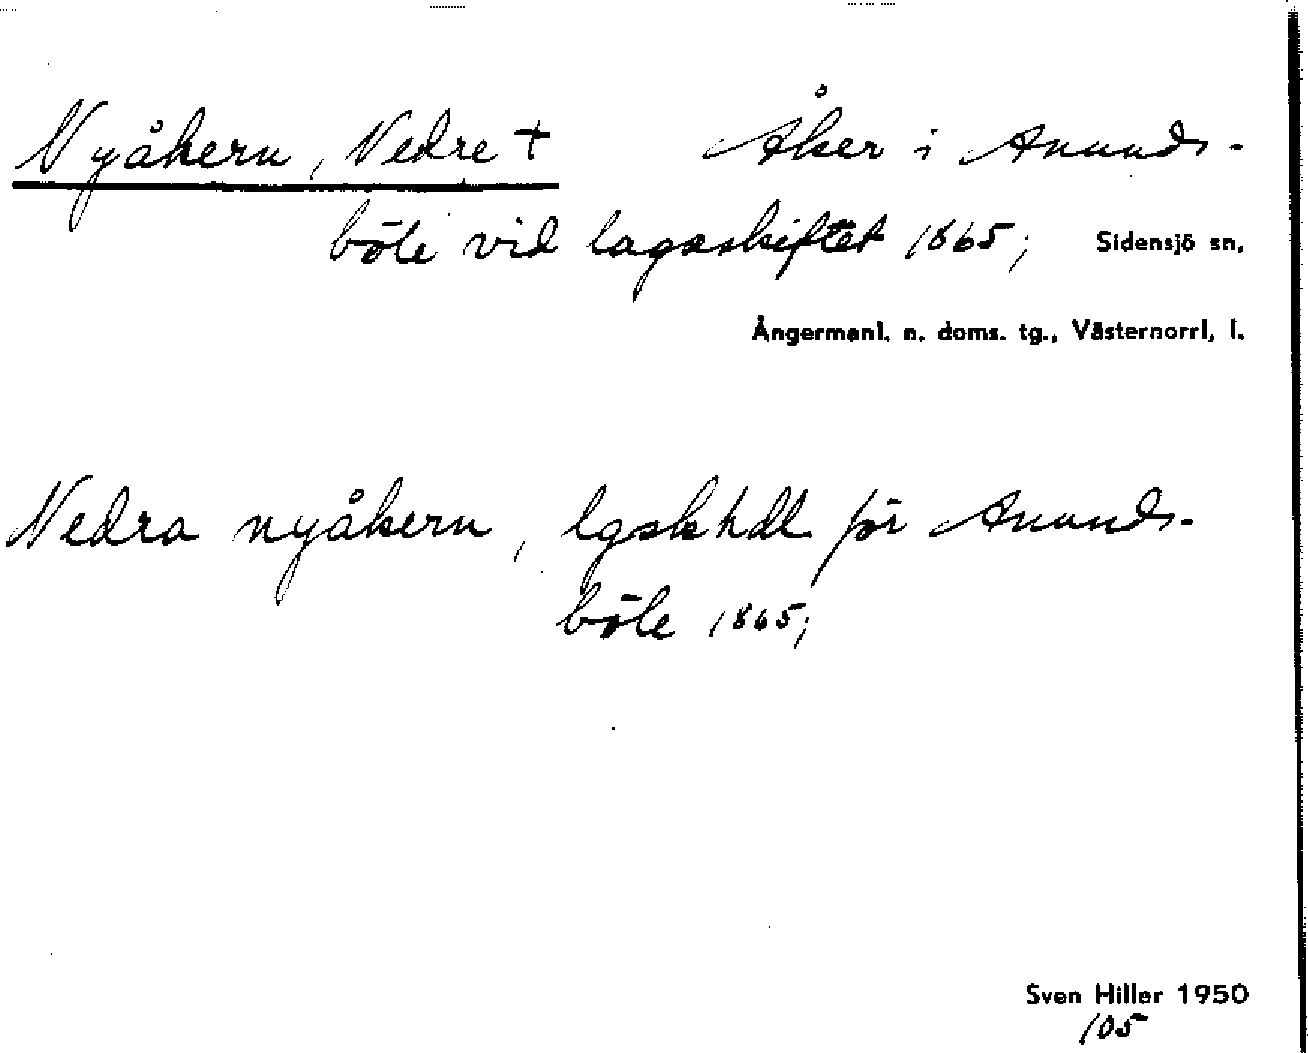 Nyåkern, Nedre † Åker i Anunds-
böle vid lagaskiftet 1865; Sidensjö sn,
Ångermanl. n. doms. tg., Västernorrl, l.
Nedra nyåkern, lgskhdl för Anunds-
böle 1865;
Sven Hiller 1950
105